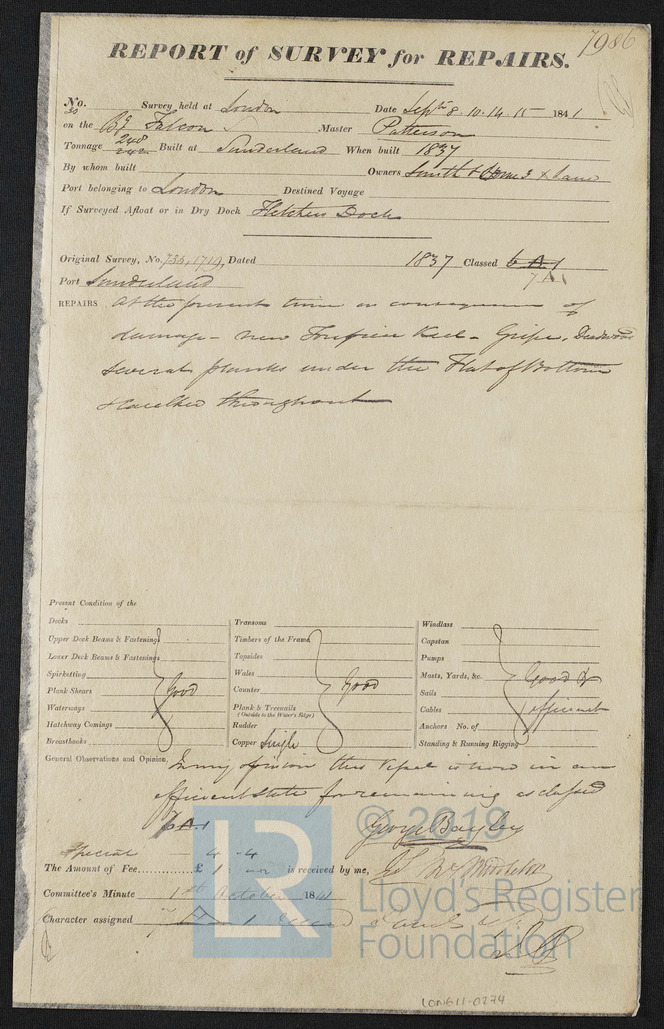 7986
REPORT of SURVEY for REPAIRS.
No. 30 Survey held at London Date Septr 8. 10. 14. 15 1841
on the Bg Falcon Master Patterson
Tonnage 248 Built at Sunderland When built 1837
By whom built Owners Smith &
Port belonging to London Destined Voyage
If Surveyed Afloat or in Dry Dock Fletchers Dock
Original Survey, No. 735, 1719, Dated 1837 Classed 6 A.1
7 A1
Port Sunderland
REPAIRS At the present time in consequence of
damage - new Keel - Gripe, Deadwood
several planks under the Flat of Bottom
& caulked throughout
Present Condition of the
Decks
Upper Deck Beams & Fastenings
Lower Deck Beams & Fastenings
Spirketting
Plank Shears Good
Waterways
Hatchway Comings
Breasthooks
Transoms
Timbers of the Frame
Topsides
Wales Good
Counter
Plank & Treenails
(Outside to the Water's Edge)
Rudder
Copper Single
Windlass
Capstan
Pumps
Masts, Yards, &c. Good &
Sails
Cables efficient
Anchors No. of
Standing & Running Rigging
General Observations and Opinion, In my opinion this Vessel is now in an
efficient state for remaining as classed
6 A.1 George Bayley
Special 4 - 4
The Amount of Fee £ 1 is received by me,
Committee's Minute 1st October 1841
Character assigned A 1
© 2019
LR
Lloyd's Register
Foundation
LON611-0274